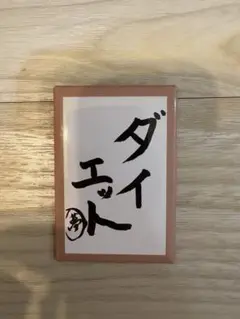 ダイ
エット